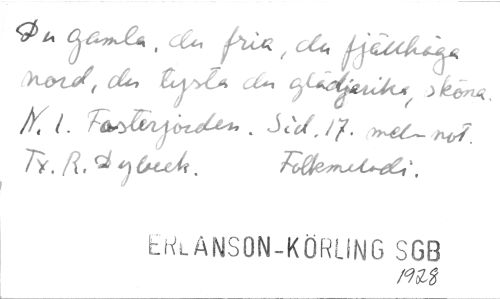 Du gamla, du fria, du fjällhöga
nord, du tysta du glädjerika, sköna.
N. 1. Fosterjorden. Sid. 17. mel- not.
Tx. R. Dybeck. Folkmelodi.
ERLANSON-KÖRLING SGB
1928